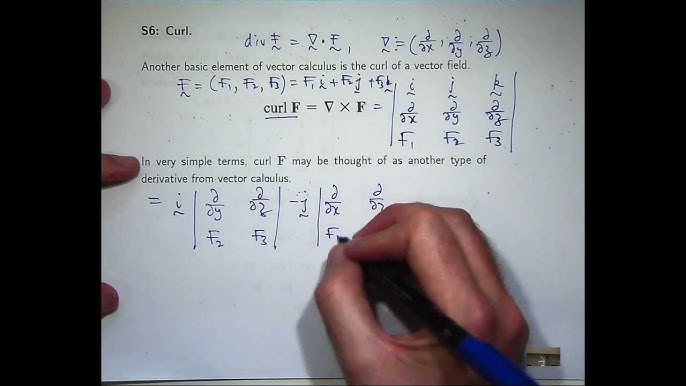 S6: Curl.
div F = ∇ · F, ∇ := (∂/∂x, ∂/∂y, ∂/∂z)
Another basic element of vector calculus is the curl of a vector field.
F = (F₁, F₂, F₃) = F₁ i + F₂ j + F₃ k
curl F = ∇ × F = | i j k |
| ∂/∂x ∂/∂y ∂/∂z |
| F₁ F₂ F₃ |
In very simple terms, curl F may be thought of as another type of
derivative from vector calculus.
= i | ∂/∂y ∂/∂z | - j | ∂/∂x ∂/∂z
| F₂ F₃ | | F₁